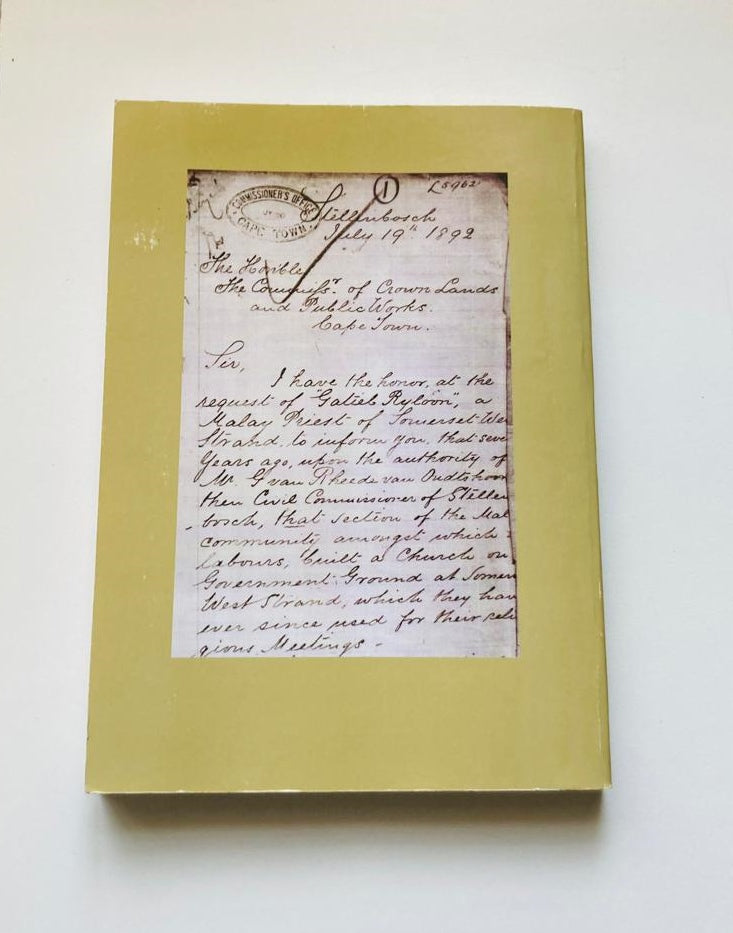 1
L5962
COMMISSIONER'S OFFICE
CAPE TOWN
Stellenbosch
July 19th 1892
The Honble
The Commissr. of Crown Lands
and Public Works.
Cape Town.
Sir,
I have the honor, at the
request of "Gatieb Ryloon", a
Malay Priest of Somerset Wes
Strand, to inform you, that seve
Years ago, upon the authority of
Mr. G van Rheede van Oudtshoorn
then Civil Commissioner of Stellen
-bosch, that section of the Mal
community amongst which
labours, built a Church on
Government Ground at Somers
West Strand, which they hav
ever since used for their reli
gious Meetings -